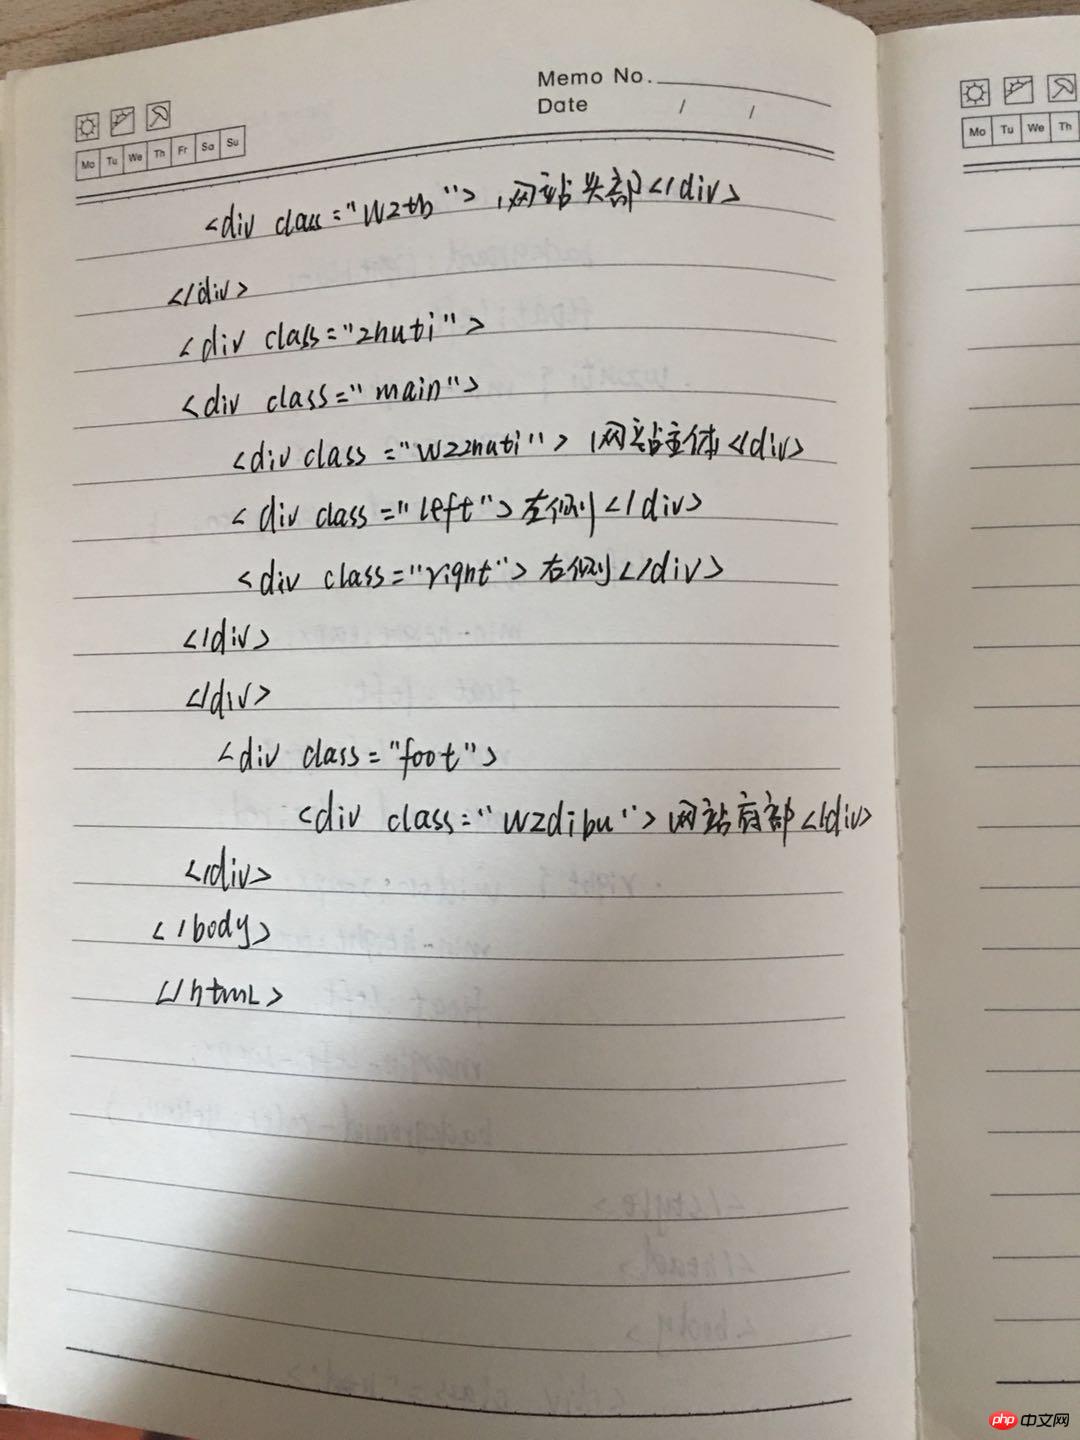 Memo No.
Date / /
Mo Tu We Th Fr Sa Su
Mo Tu We Th
<div class="wztb">网站头部</div>
</div>
<div class="zhuti">
<div class="main">
<div class="wzzhuti">网站主体</div>
<div class="left">左侧</div>
<div class="right">右侧</div>
</div>
</div>
<div class="foot">
<div class="wzdibu">网站底部</div>
</div>
</body>
</html>
php 中文网